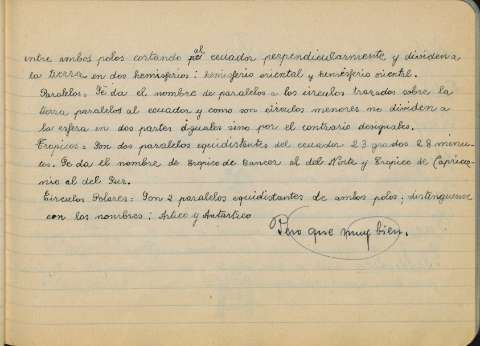 entre ambos polos cortando al ecuador perpendicularmente y dividen a
la tierra en dos hemisferios: hemisferio oriental y hemisferio oriental.
Paralelos. Se da el nombre de paralelos a los circulos trazados sobre la
tierra paralelos al ecuador y como son circulos menores no dividen a
la esfera en dos partes iguales sino por el contrario desiguales.
Tropicos: Son dos paralelos equidistantes del ecuador 23 grados 28 minu-
tos. Se da el nombre de Tropico de Cancer al del Norte y Tropico de Capricor-
nio al del Sur.
Circulos Polares: Son 2 paralelos equidistantes de ambos polos; distinguense
con los nombres: Artico y Antártico
Pero que muy bien.